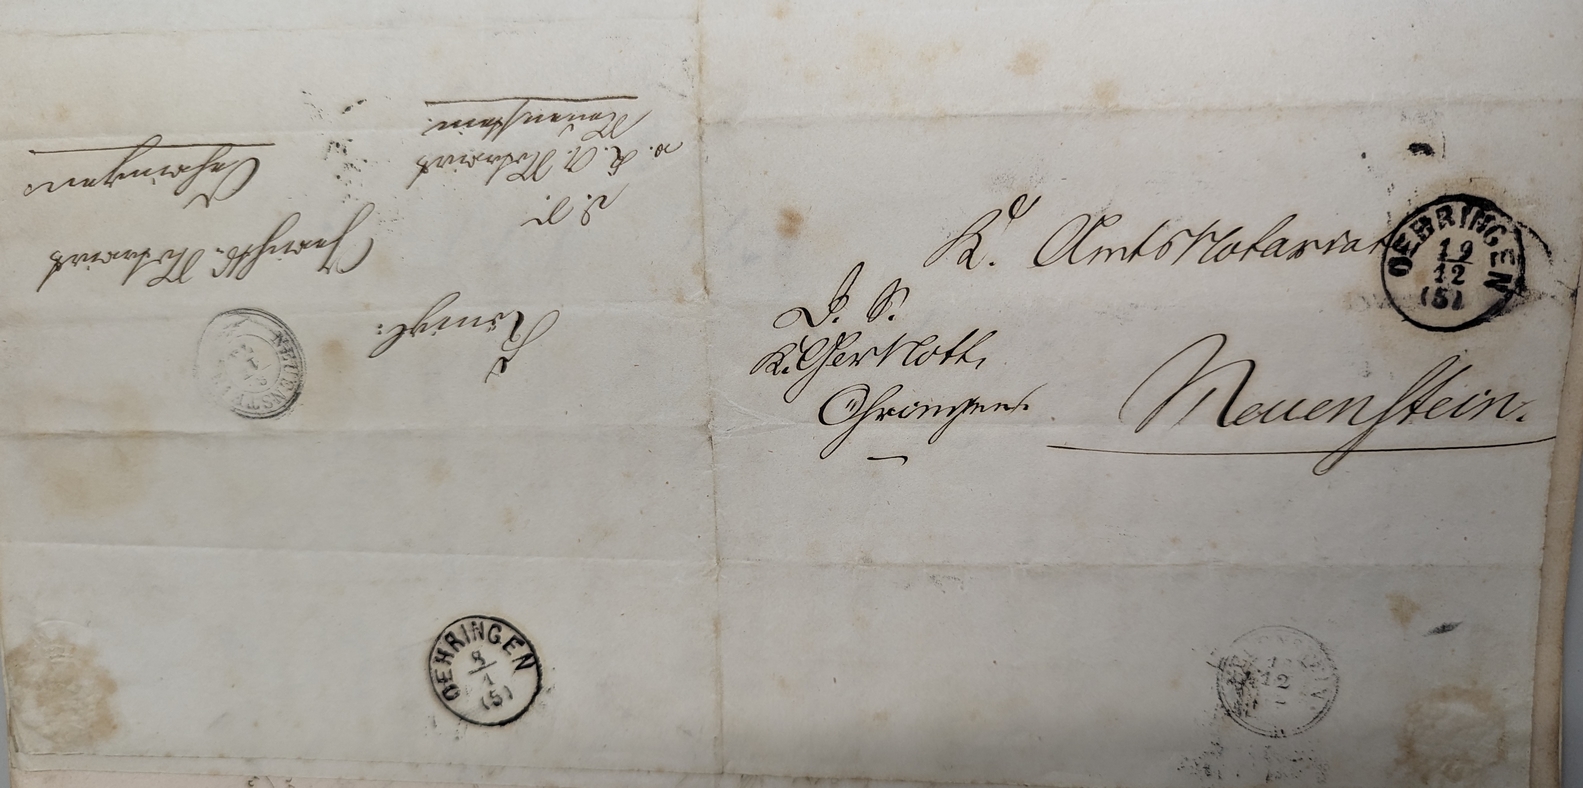 K. Amtsnotariat
D. S.
K. Ger Nott.
Öhringen.
Neuenstein.
OEHRINGEN
19
12
(5)
Königl:
Gerichts. Notariat
Oehringen
D. S.
v. K. A. Notariat
Neuenstein.
NEUENSTEIN
8
1
OEHRINGEN
8
1
(5)
12